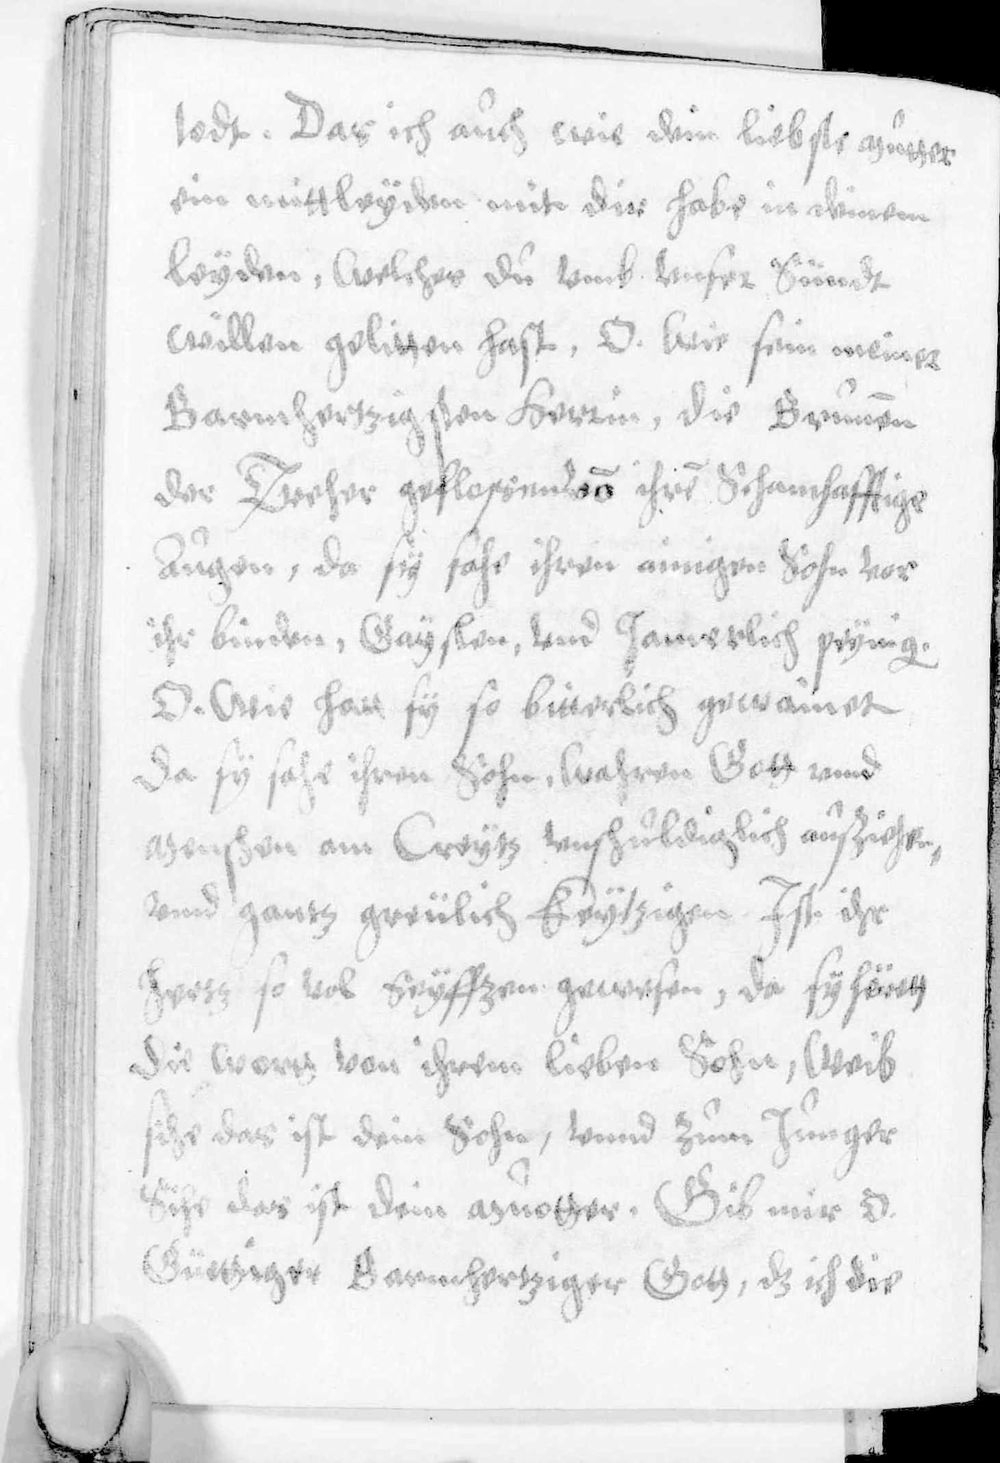 todt. Das ich auch wie dein liebste mutter
ein mittleyden mit dir habe in deinem
leyden, welches du vmb vnser Sündt
willen gelitten hast, O. wie sein meiner
Barmhertzigsten Herrin, die Brunnen
der Treher geflossen võ ihrẽ Schamhafftige
Augen, da sy sahe ihren ainigen Sohn vor
ihr binden, Gayslen, vnd Jamerlich peynig.
O. Wie hatt sy so bitterlich gewainet
da sy sahe ihren Sohn, wahren Gott vnnd
menschen am Creytz vnschuldigklich aufziehen,
vnnd gantz greülich Creytzigen. Ist ihr
hertz so vol Seyfftzen gewesen, da sy hörett
die wortt von ihrem lieben Sohn, Weib
sihe das ist dein Sohn, vnnd zum Junger
Sihe das ist dein muotter. Gib mir O.
Güettiger Barmhertziger Gott, dz ich die